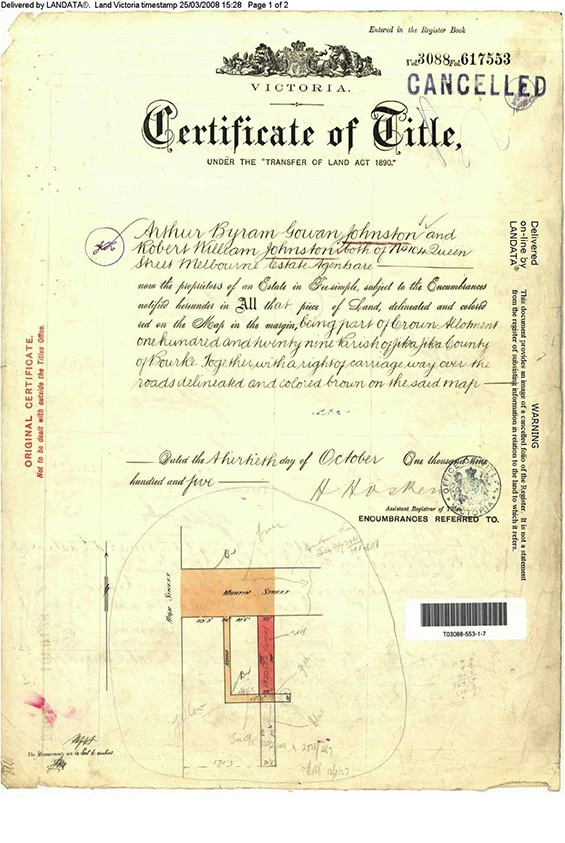 Delivered by LANDATA®. Land Victoria timestamp 25/03/2008 15:28 Page 1 of 2
Entered in the Register Book
Vol. 3088 Fol. 617553
CANCELLED
VICTORIA.
Certificate of Title,
UNDER THE "TRANSFER OF LAND ACT 1890."
Arthur Byram Gowan Johnston and
Robert William Johnston both of No 104 Queen
Street Melbourne Estate Agents are
now the proprietors of an Estate in Fee-simple, subject to the Encumbrances
notified hereunder in All that piece of Land, delineated and colored
red on the Map in the margin, being part of Crown Allotment
one hundred and twenty nine Parish of Jika Jika County
of Bourke. Together with a right of carriage way over the
roads delineated and colored brown on the said map
Dated the thirtieth day of October One thousand nine
hundred and five
H Hosken
Assistant Registrar of Titles
ENCUMBRANCES REFERRED TO.
OFFICE OF TITLES
VICTORIA
ORIGINAL CERTIFICATE.
Not to be dealt with outside the Titles Office.
Delivered
on-line by
LANDATA®
WARNING
This document provides an image of a cancelled folio of the Register. It is not a statement
from the register of subsisting information in relation to the land to which it refers.
HIGH STREET
MARTIN STREET
ROAD
170'3
T03088-553-1-7
The Measurements are in feet & inches